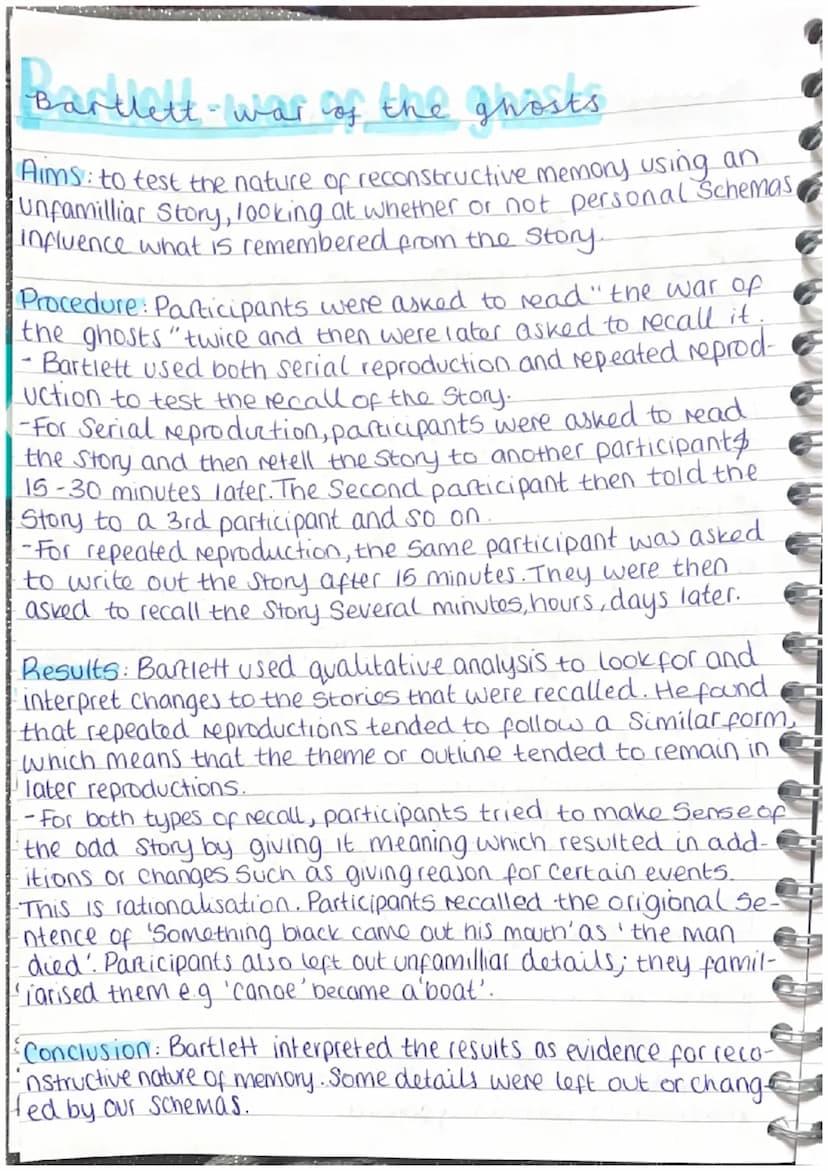 Bartlett - war of the ghosts
Aims: to test the nature of reconstructive memory using an
unfamilliar Story, looking at whether or not personal Schemas
influence what is remembered from the Story.
Procedure: Participants were asked to read "the war of
the ghosts" twice and then were later asked to recall it.
- Bartlett used both serial reproduction and repeated reprod-
uction to test the recall of the Story.
-For Serial reproduction, participants were asked to read
the Story and then retell the Story to another participant
15-30 minutes later. The Second participant then told the
Story to a 3rd participant and so on.
-For repeated reproduction, the Same participant was asked
to write out the Story after 15 minutes. They were then
asked to recall the Story Several minutes, hours, days later.
Results: Bartlett used qualitative analysis to look for and
interpret changes to the stories that were recalled. He found
that repeated reproductions tended to follow a Similar form,
which means that the theme or outline tended to remain in
later reproductions.
-For both types of recall, participants tried to make Sense of
the odd Story by giving it meaning which resulted in add-
itions or changes Such as giving reason for certain events.
This is rationalisation. Participants recalled the origional se-
ntence of 'Something black came out his mouth' as 'the man
died'. Participants also left out unfamilliar details; they famil-
iarised them e.g 'canoe' became a 'boat'.
Conclusion: Bartlett interpreted the results as evidence for reco-
nstructive nature of memory. Some details were left out or chang-
ed by our schemas.